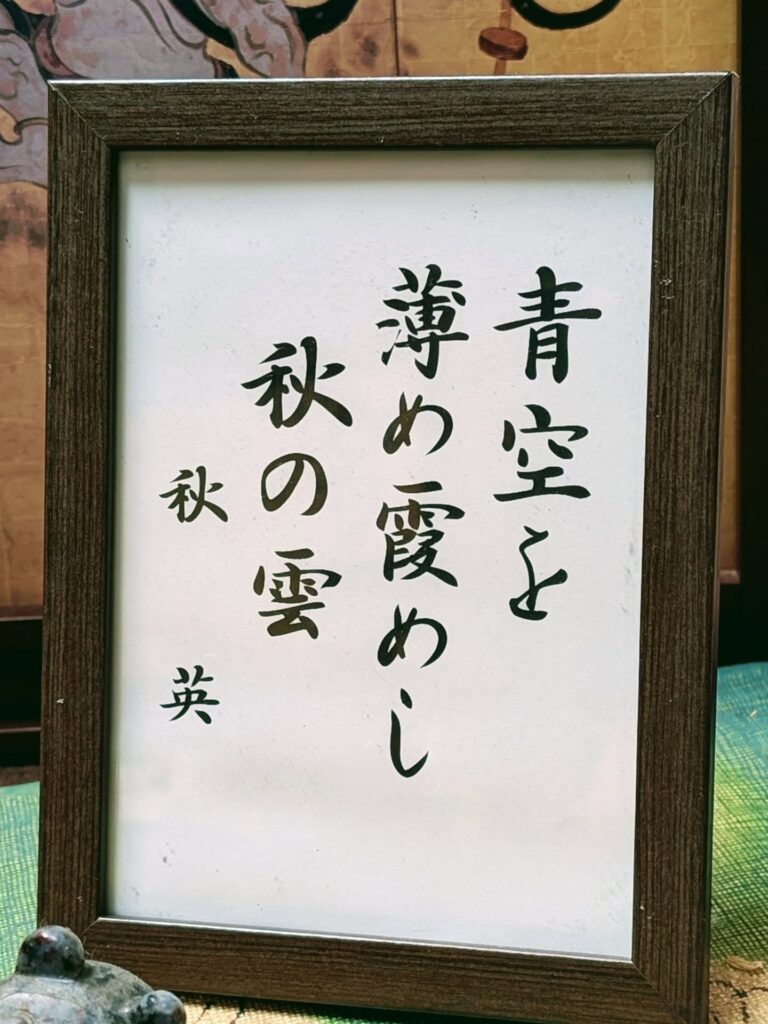 青空を
薄め霞めし
秋の雲
秋英